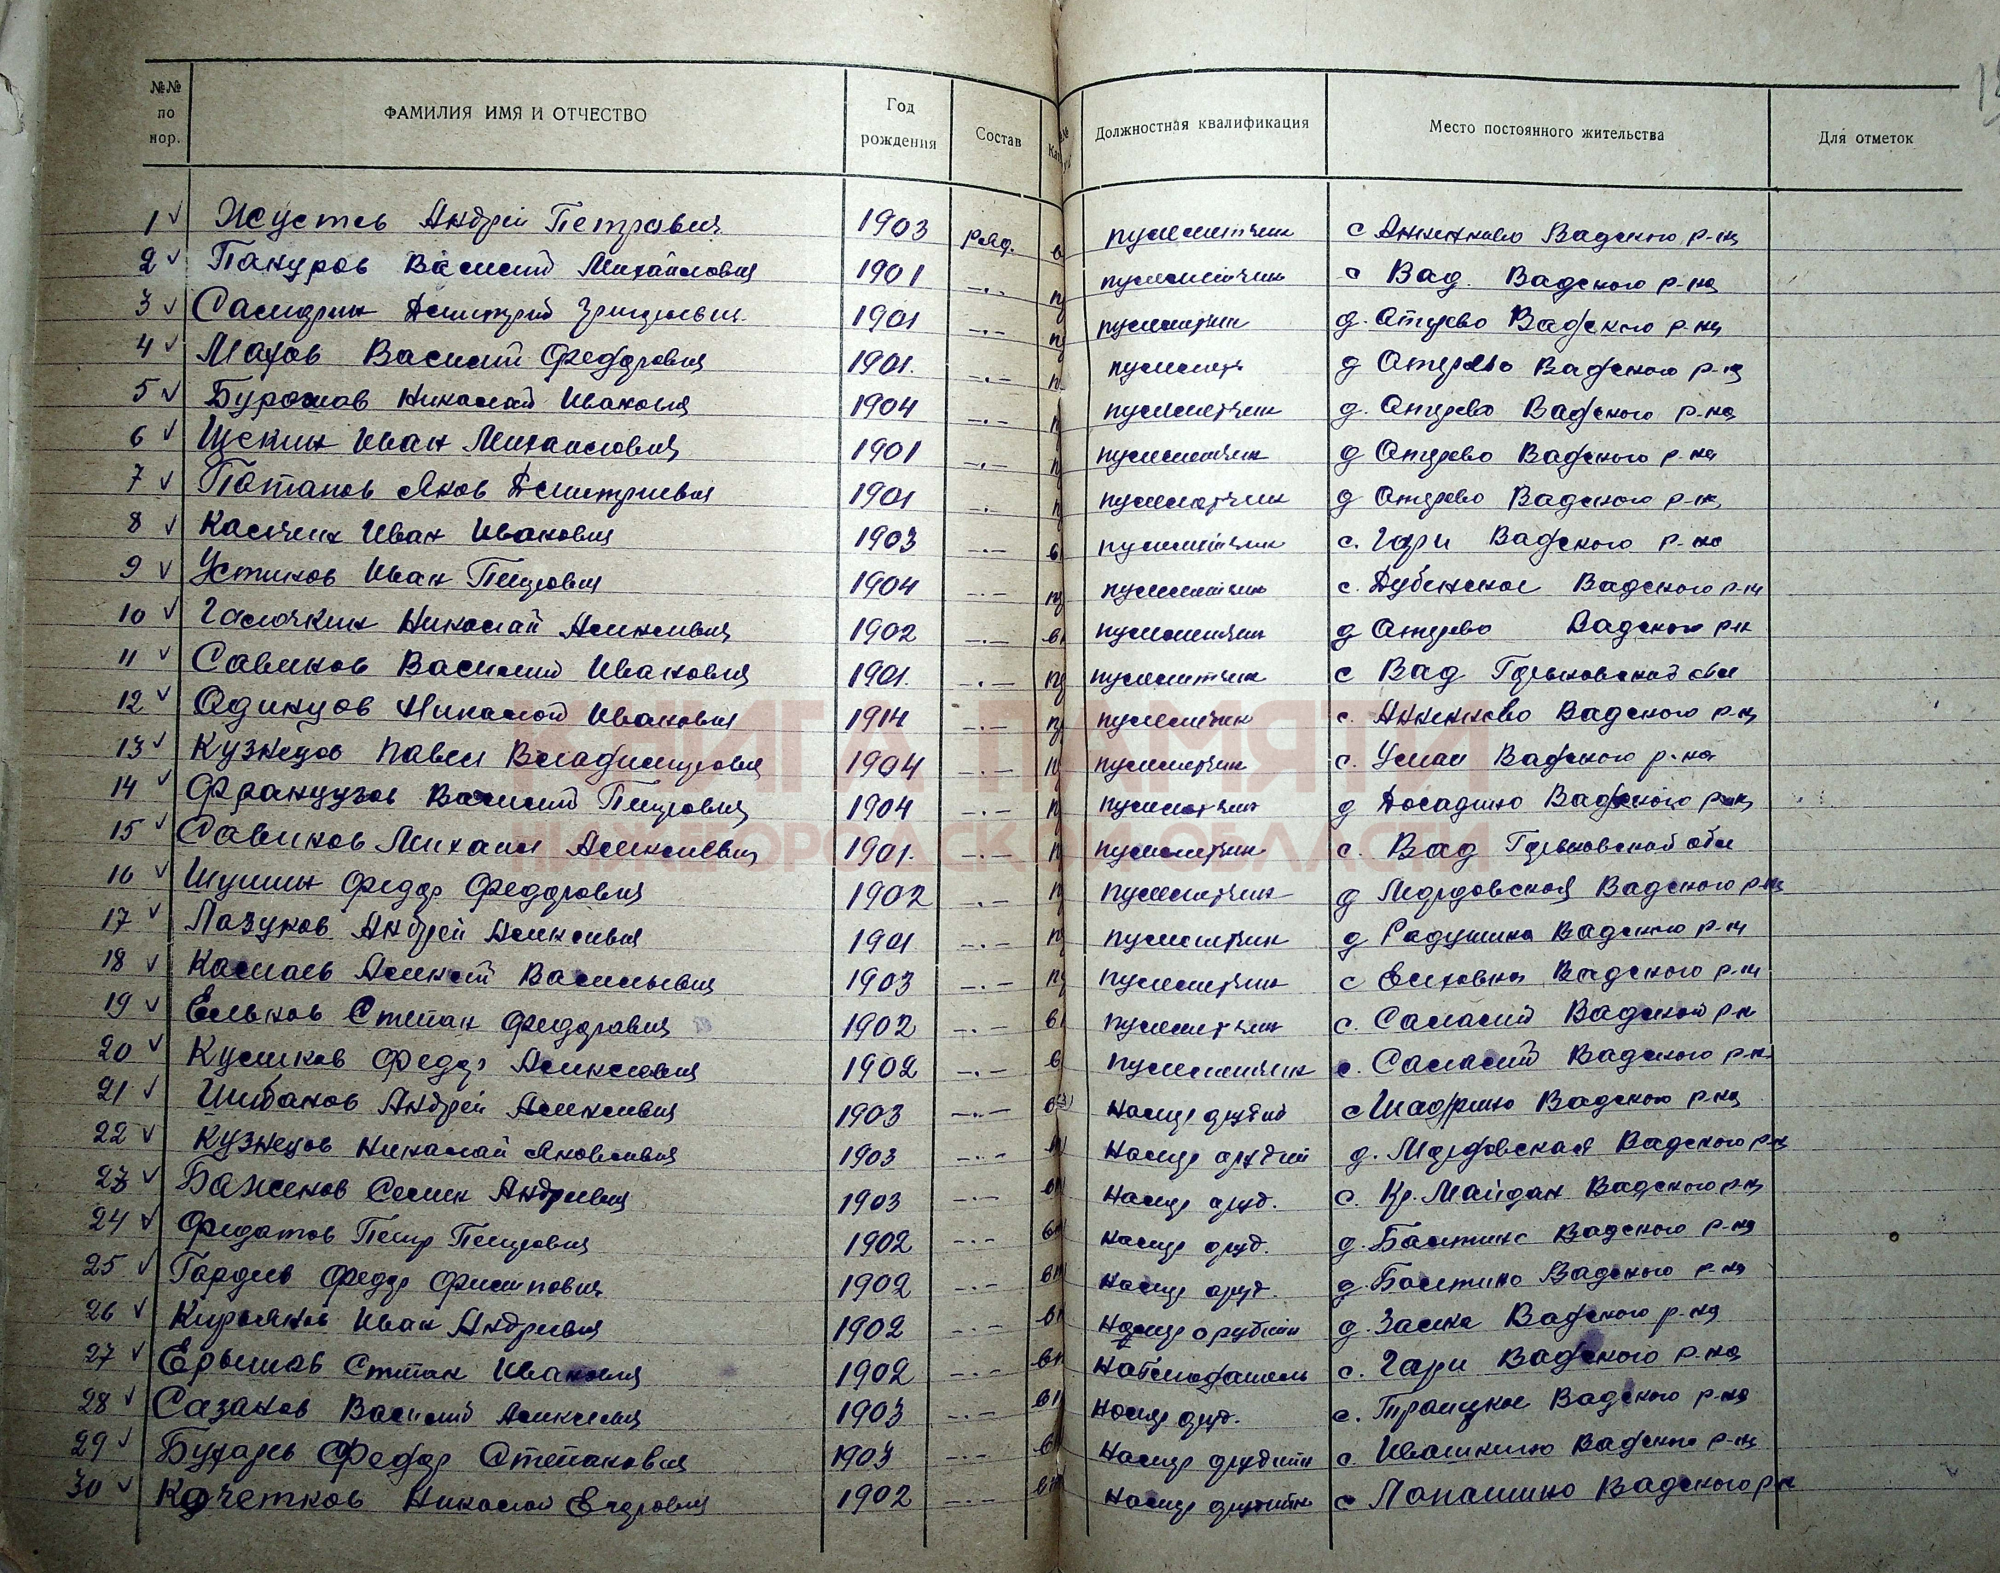 №№ по нор. ФАМИЛИЯ ИМЯ И ОТЧЕСТВО Год рождения Состав Должностная квалификация Место постоянного жительства Для отметок
1 Жустев Андрей Петрович 1903 ряд. пулеметчик с Анненково Вадского р-на
2 Пануров Василий Михайлович 1901 -"- пулеметчик с Вад. Вадского р-на
3 Дмитрий Григорьевич 1901 -"- пулеметчик д. Отерево Вадского р-на
4 Махов Василий Федорович 1901. -"- д Отерево Вадского р-на
5 Николай Иванович 1904 -"- пулеметчик д. Отерево Вадского р-на
6 Щекин Иван Михайлович 1901 -"- пулеметчик д Отерево Вадского р-на
7 Потапов Яков Дмитриевич 1901 -"- пулеметчик д Отерево Вадского р-на
8 Иван Иванович 1903 -"- пулеметчик с. Гари Вадского р-на
9 Устинов Иван Петрович 1904 -"- пулеметчик с. Дубенское Вадского р-на
10 Галочкин Николай Алексеевич 1902 -"- пулеметчик д Отерево Вадского р-н
11 Савинов Василий Иванович 1901. -"- пулеметчик с Вад Горьковской обл
12 Одинцов Николай Иванович 1914 -"- пулеметчик с. Анненково Вадского р-на
13 Кузнецов Павел Владимирович 1904 -"- пулеметчик с. Вадского р-на
14 Французов Василий Петрович 1904 -"- пулеметчик д Досадино Вадского р-на
15 Савинов Михаил Алексеевич 1901. -"- пулеметчик с. Вад Горьковской обл
16 Шушин Федор Федорович 1902 -"- пулеметчик д Мордовская Вадского р-на
17 Лазуков Андрей Алексеевич 1901 -"- пулеметчик д Радушино Вадского р-на
18 Алексей Васильевич 1903 -"- пулеметчик с Елховка Вадского р-на
19 Ельков Степан Федорович 1902 -"- пулеметчик с. Салалей Вадского р-н
20 Куликов Федор Алексеевич 1902 -"- пулеметчик с. Салалей Вадского р-н
21 Шибанов Андрей Алексеевич 1903 -"- номер орудий с Шадрино Вадского р-на
22 Кузнецов Николай Яковлевич 1903 -"- номер орудий д. Мордовская Вадского р-н
23 Баженов Семен Андреевич 1903 -"- номер оруд. с. Кр. Майдан Вадского р-на
24 Федотов Петр Петрович 1902 -"- номер оруд. д. Болтино Вадского р-на
25 Гордеев Федор Филиппович 1902 -"- номер оруд. д. Болтино Вадского р-на
26 Кирьянов Иван Андреевич 1902 -"- номер орудий д. Вадского р-на
27 Степан Иванович 1902 -"- наблюдатель с. Гари Вадского р-на
28 Сазанов Василий Алексеевич 1903 -"- номер оруд. с. Троицкое Вадского р-на
29 Бухарев Федор Степанович 1903 -"- номер орудийн с. Ивашкино Вадского р-на
30 Кочетков Николай Егорович 1902 -"- номер орудийн с Лопатино Вадского р-н
КНИГА ПАМЯТИ
НИЖЕГОРОДСКОЙ ОБЛАСТИ